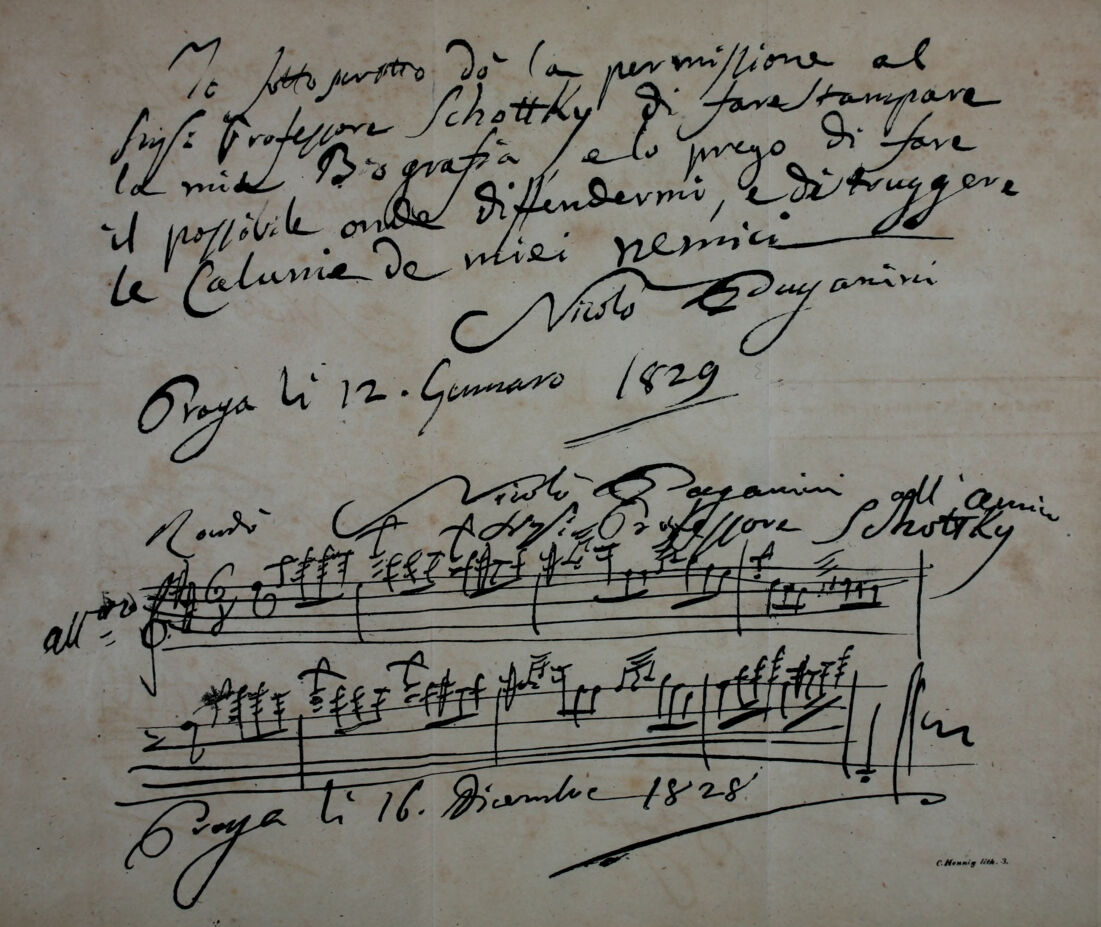 Io sottoscritto dò la permissione al
Sigr: Professore Schottky di fare stampare
la mia Biografia, e lo prego di fare
il possibile onde diffendermi, e distruggere
le Calunie de miei nemici
Nicolò Paganini
Praga li 12. Gennaro 1829
Nicolò Paganini all'amico
Rondò Sigr: Professore Schottky
all.ro
6 8
Fin
Praga li 16. Dicembre 1828
C. Hennig lith. 3.